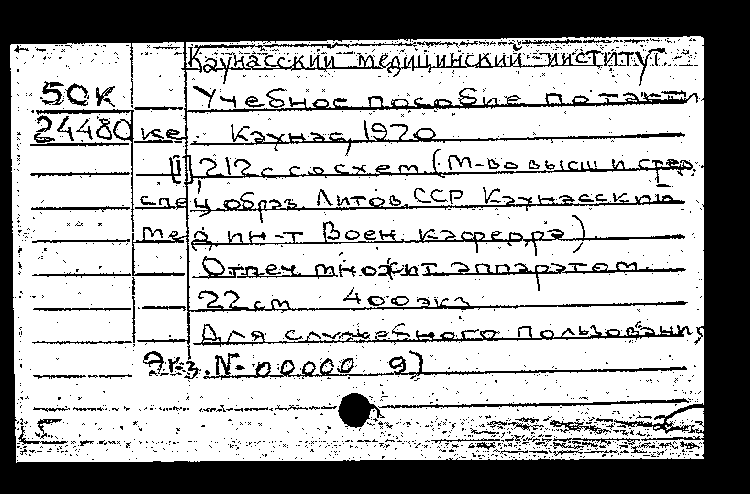 Каунасский медицинский институт
50К Учебное пособие по такти
24480 ке. Каунас, 1970
[1], 212 с со схем. (М-во высш и сред
спец образ Литов. ССР Каунасский
мед ин-т Воен. кафедра)
Отпеч множит аппаратом
22 см 400 экз
Для служебного пользования
Экз. № 00000 9)